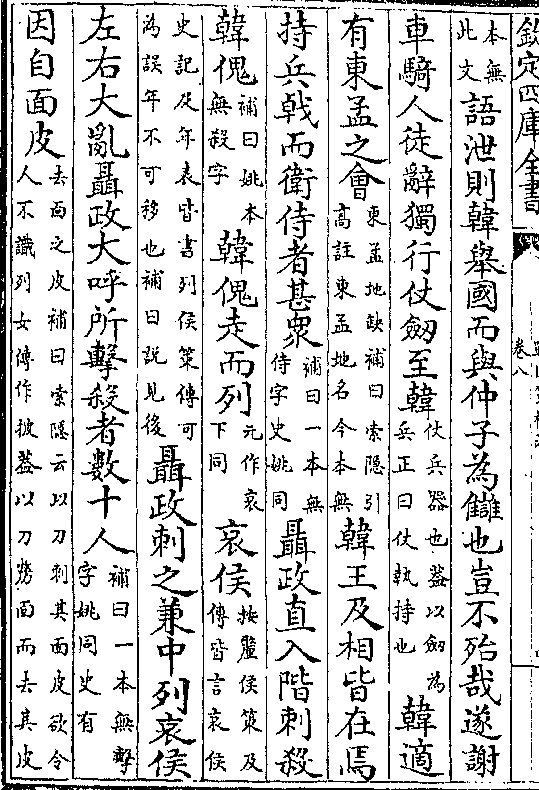 欽定四庫全書
卷八
本無此文語泄則韓舉國而與仲子為讎也豈不殆哉遂謝
車騎人徒辭獨行仗劒至韓仗兵器也葢以劒為兵正曰仗執持也韓適
有東孟之會東孟地缺補曰索隱引高註東孟地名今本無韓王及相皆在焉
持兵戟而衛侍者甚衆補曰一本無侍字史姚同聶政直入階刺殺
韓傀補曰姚本無殺字韓傀走而列元作哀下同哀侯按釐侯策及傳皆言哀侯
史記及年表皆書列侯策傳可為誤年不可移也補曰説見後聶政刺之兼中列哀侯
左右大亂聶政大呼所擊殺者數十人補曰一本無擊字姚同史有
因自面皮去面之皮補曰索隱云以刀刺其面皮欲令人不識列女傳作披葢以刀剺面而去其皮